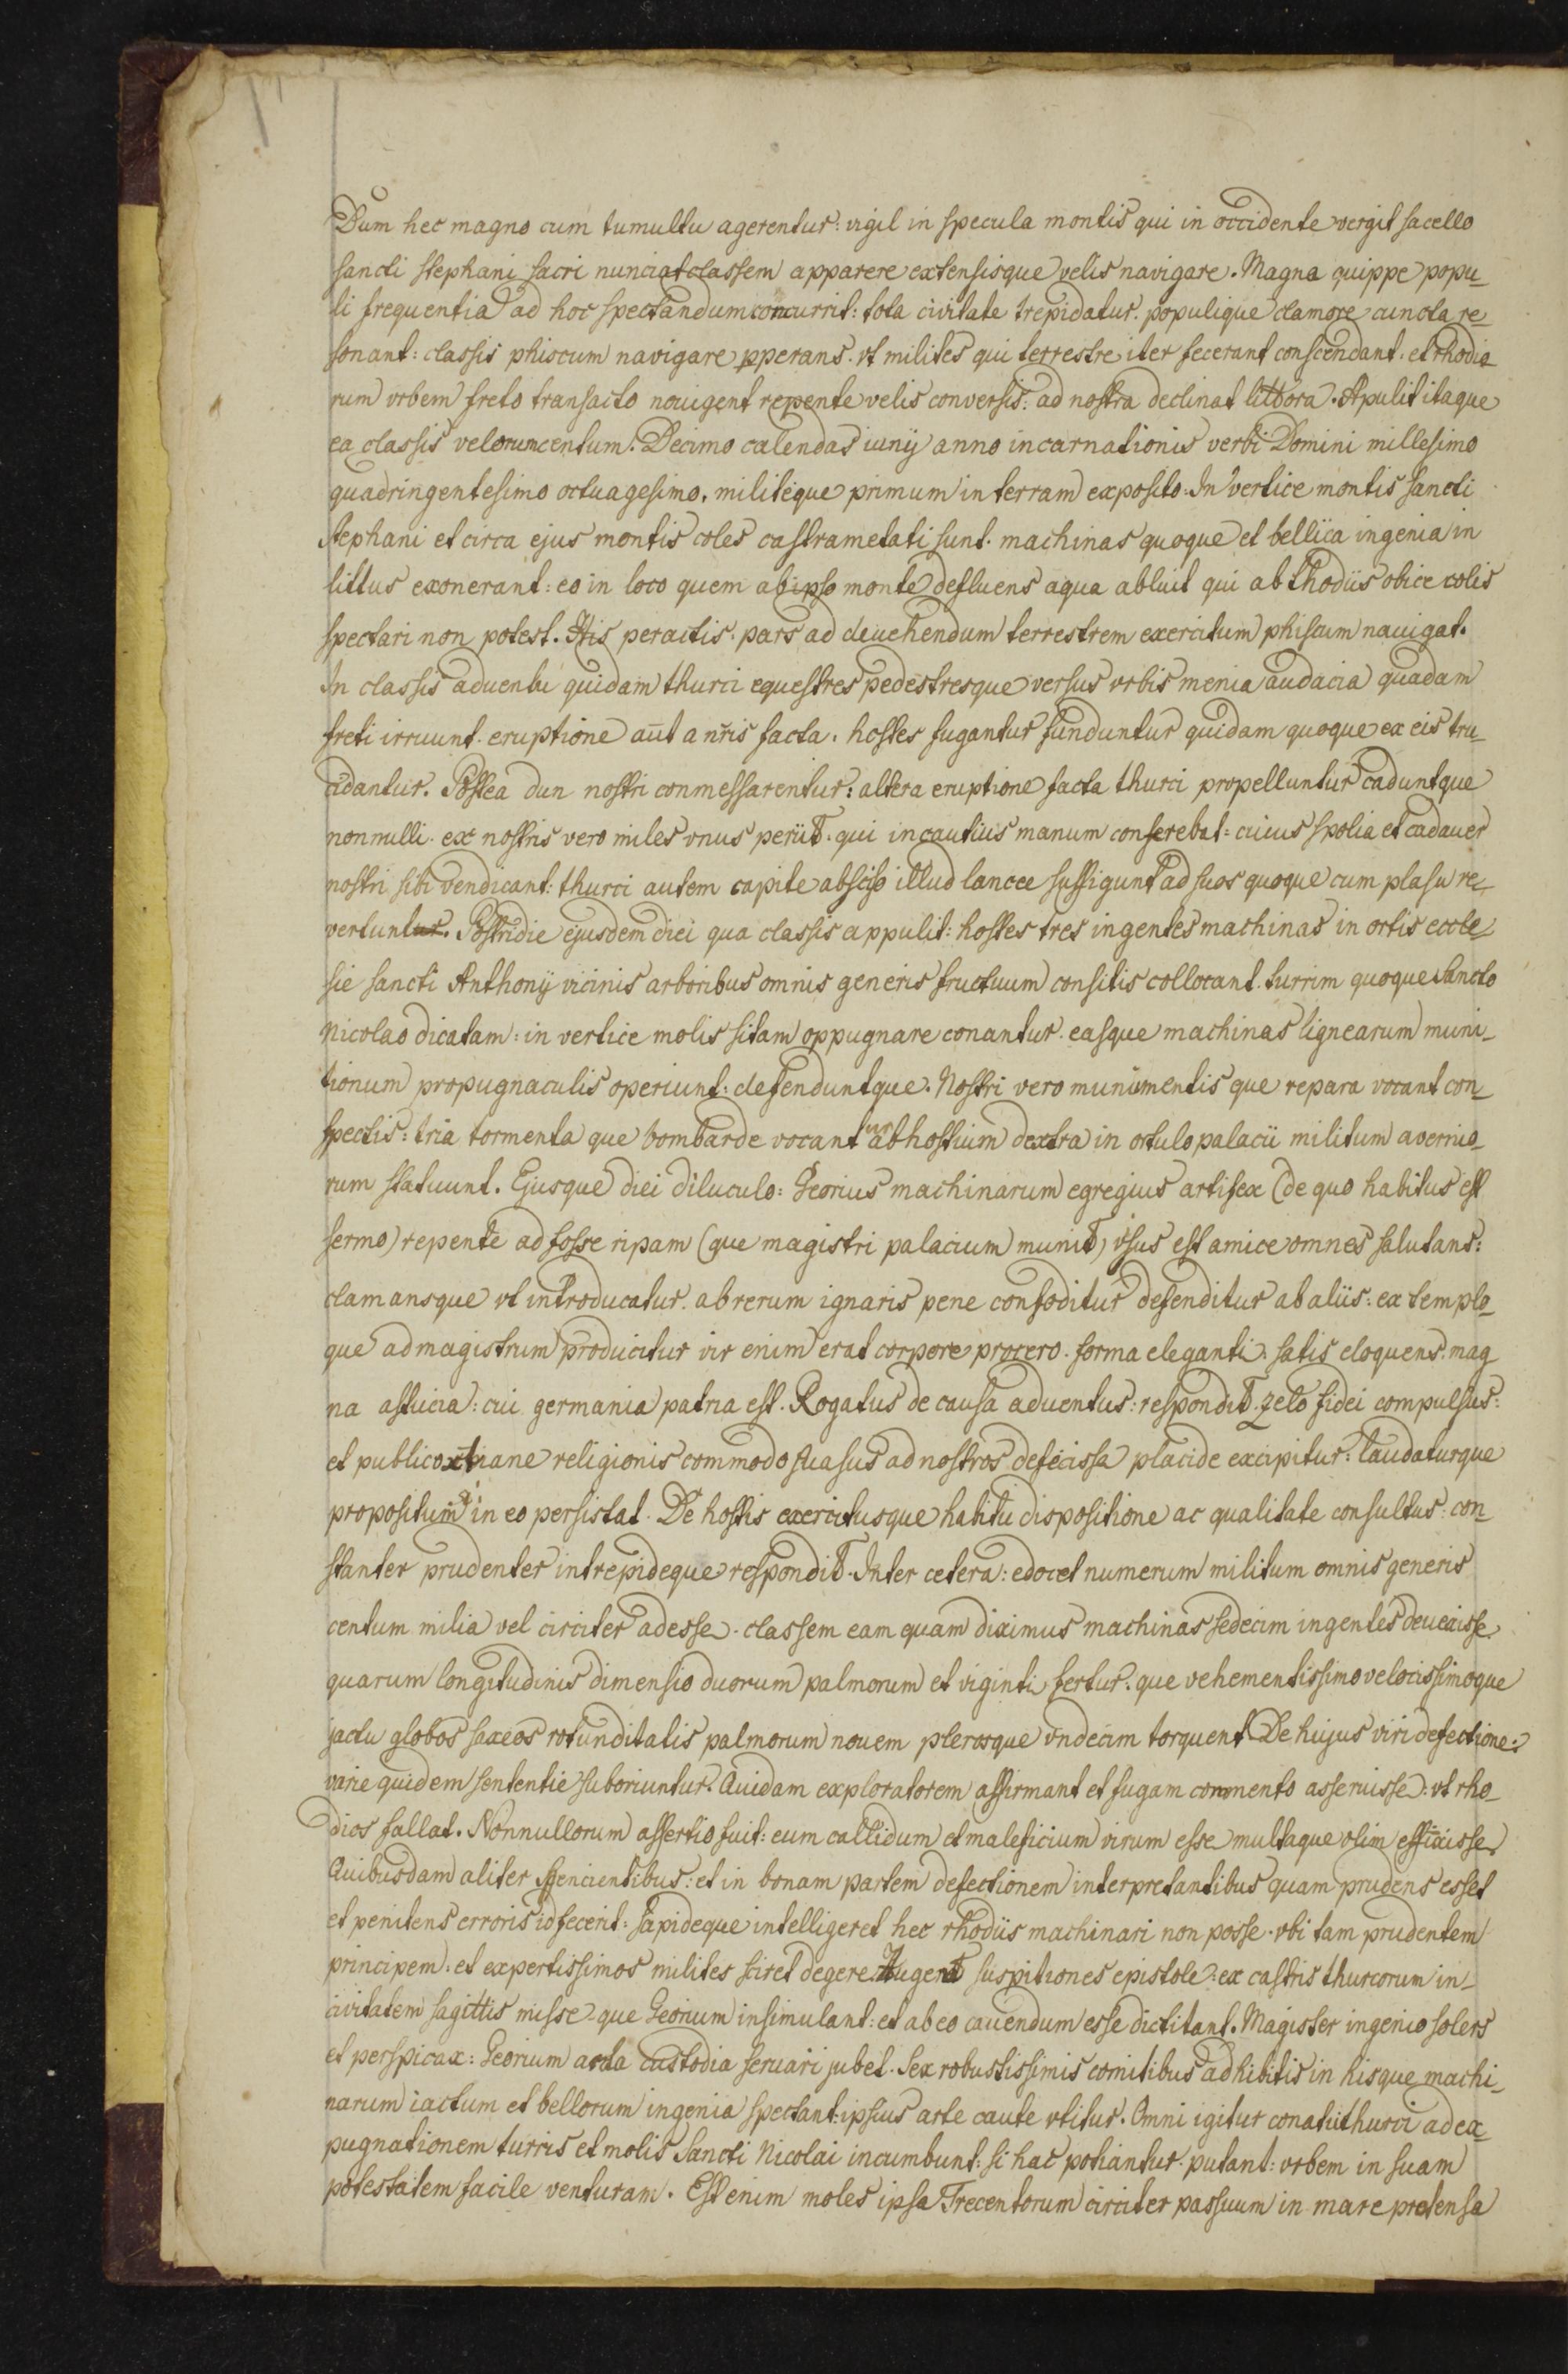 Dum hec magno cum tumultu agerentur: vigil in specula montis qui in occidente vergit sacello
sancti stephani sacri nunciat classem apparere extensisque velis navigare. Magna quippe popu-
li frequentia ad hoc spectandum concurrit: tota civitate trepidatur. populique clamore cuncta re-
sonant: classis phiscum navigare pperans. vt milites qui terrestre iter fecerant conscendant. et rhodio-
rum vrbem freto transacto nauigent repente velis conversis: ad nostra declinat littora. Apulit itaque
ea classis velorum centum. Decimo calendas iunij anno incarnationis verbi Domini millesimo
quadringentesimo octuagesimo. militeque primum in terram exposito. In vertice montis sancti
stephani et circa ejus montis coles castrametati sunt. machinas quoque et bellica ingenia in
littus exonerant: eo in loco quem ab ipso monte defluens aqua abluit qui ab rhodiis obice colis
spectari non potest. His peractis. pars ad deuehendum terrestrem exercitum phiscum nauigat.
In classis aduentu quidam thurci equestres pedestresque versus vrbis menia audacia quadam
freti irruunt. eruptione aut̄ a nr̄is facta. hostes fugantur funduntur quidam quoque ex eis tru-
cidantur. Postea dun nostri conmessarentur: altera eruptione facta thurci propelluntur caduntque
nonnulli. ex nostris vero miles vnus periit. qui incautius manum conserebat: cuius spolia et cadauer
nostri sibi vendicant: thurci autem capite absciso illud lancee suffigunt ad suos quoque cum plasu re-
vertuntur. Postridie ejusdem diei qua classis appulit: hostes tres ingentes machinas in ortis eccle-
sie sancti Anthonij vicinis arboribus omnis generis fructuum consitis collocant. turrim quoque sancto
Nicolao dicatam: in vertice molis sitam oppugnare conantur. easque machinas lignearum muni-
tionum propugnaculis operiunt: defenduntque. Nostri vero munimentis que repara vocant con-
spectis: tria tormenta que bombarde vocant ab hostium dextra in ortulo palacii militum avernio-
rum statuunt. Ejusque diei diluculo: Georius machinarum egregius artifex (de quo habitus est
sermo) repente ad fosse ripam (que magistri palacium munit) visus est amice omnes salutans:
clamansque vt introducatur. ab rerum ignaris pene confoditur defenditur ab aliis: ex templo-
que ad magistrum producitur vir enim erat corpore procero. forma eleganti. satis eloquens. mag
na astucia: cui germania patria est. Rogatus de causa aduentus: respondit. zelo fidei compulsus:
et publico xtiane religionis commodo suasus ad nostros defecisse placide excipitur: laudaturque
propositum si in eo persistat. De hostis exercitusque habitu dispositione ac qualitate consultus: con-
stanter prudenter intrepideque respondit. Inter cetera: edocet numerum militum omnis generis
centum milia vel circiter adesse. classem eam quam diximus machinas sedecim ingentes deuexisse
quarum longitudinis dimensio duorum palmorum et viginti fertur. que vehementissimo velocissimoque
jactu globos saxeos rotunditatis palmorum nouem plerosque vndecim torquent. De hujus viri defectione:
varie quidem sententie suboriuntur. Quidam exploratorem affirmant et fugam conmento asseruisse: vt rho-
dios fallat. Nonnullorum assertio fuit: eum callidum et maleficium virum esse multaque olim effixisse.
Quibusdam aliter sencientibus: et in bonam partem defectionem interpretantibus quam prudens esset
et penitens erroris id fecerit: sapideque intelligeret hec rhodiis machinari non posse. vbi tam prudentem
principem. et expertissimos milites sciret degere. Augent suspitiones epistole: ex castris thurcorum in-
civitatem sagittis misse. que Georium insimulant: et ab eo cauendum esse dictitant. Magister ingenio solers
et perspicax: Georium arcta custodia seruari jubet. sex robustissimis comitibus adhibitis in hisque machi-
narum iactum et bellorum ingenia spectant: ipsius arte caute vtitur. Omni igitur conatu thurci ad ex-
pugnationem turris et molis Sancti Nicolai incumbunt: si hac potiantur: putant: vrbem in suam
potestatem facile venturam. Est enim moles ipsa Trecentorum circiter passuum in mare protensa